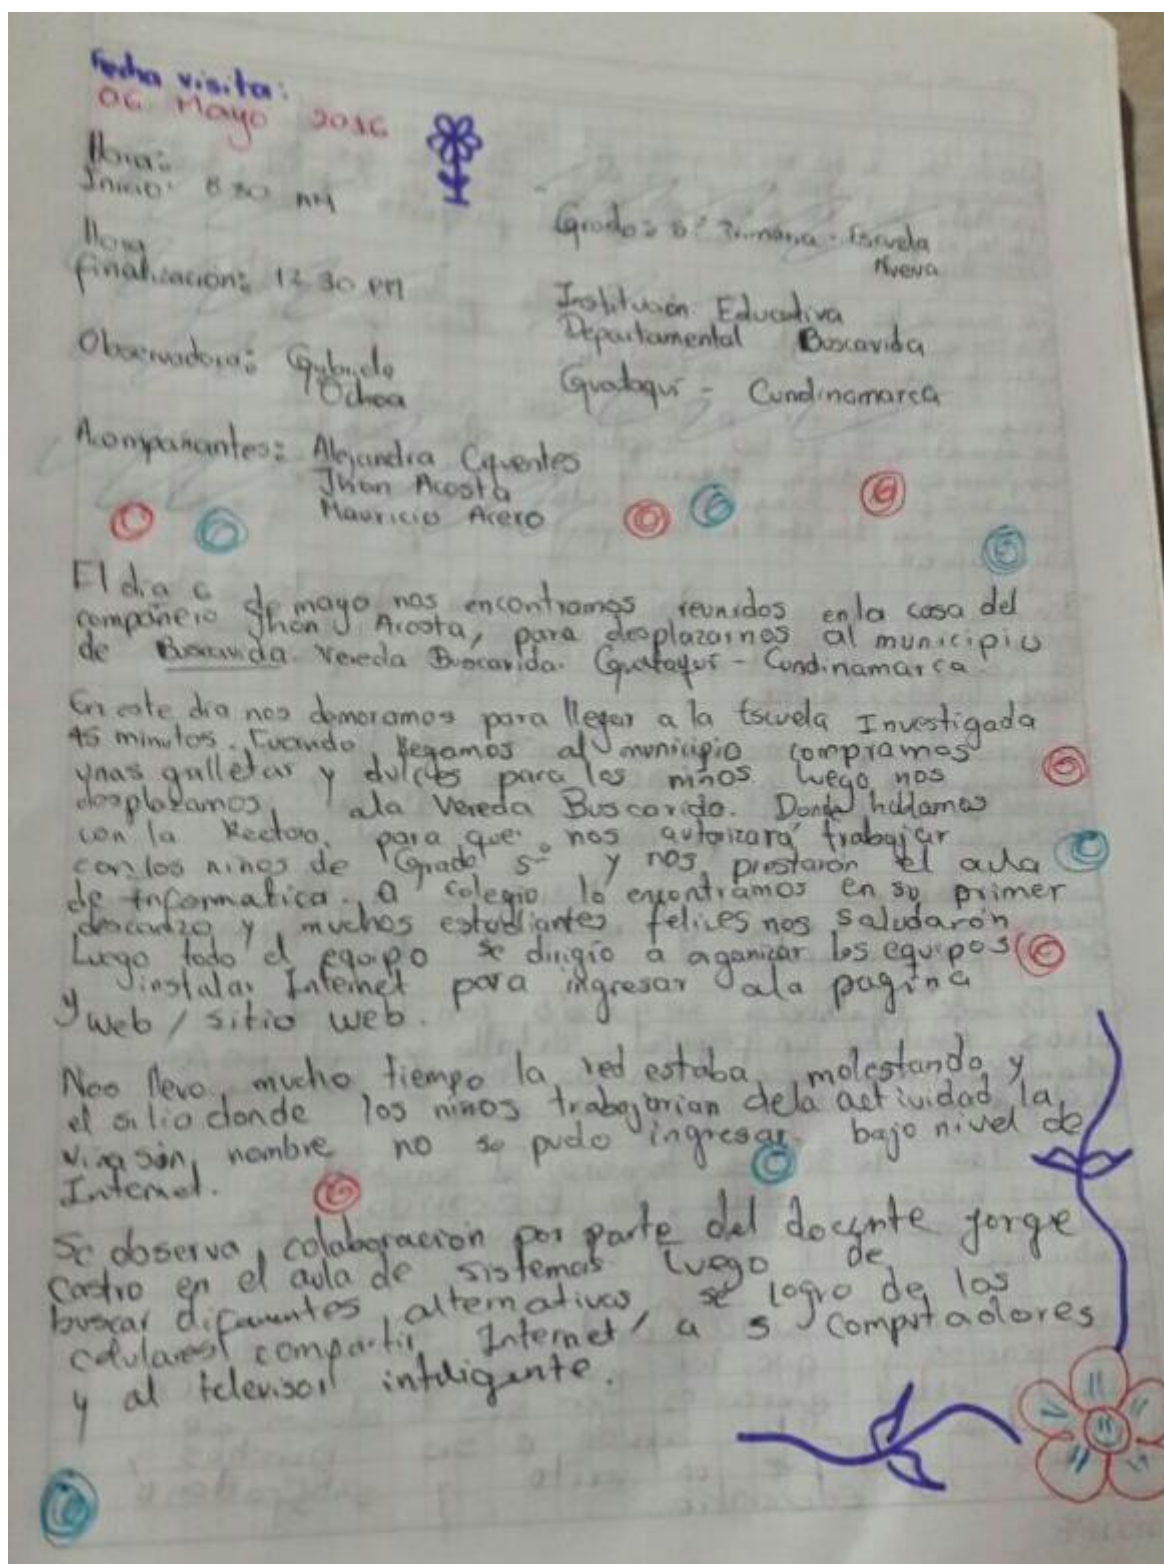 Fecha visita:
06 Mayo 2016
Hora:
Inicio: 8:30 AM
Hora
finalización: 12:30 PM
Observadora: Gabriela
Ochoa
Grado: 5° Primaria - Escuela
Nueva
Institución Educativa
Departamental Buscavida
Guataquí - Cundinamarca
Acompañantes: Alejandra Cifuentes
Jhon Acosta
Mauricio Acero
El dia 6 de mayo nos encontramos reunidos en la casa del
compañero Jhon Acosta, para desplazarnos al municipio
de Buscavida. Vereda Buscavida. Guataquí - Cundinamarca.
En este dia nos demoramos para llegar a la Escuela Investigada
45 minutos. Cuando llegamos al municipio compramos
unas galletas y dulces para los niños. luego nos
desplazamos, ala Vereda Buscavida. Donde hablamos
con la Rectora, para que nos autorizará trabajar
con los niños de Grado 5° y nos prestarón el aula
de Informatica. colegio lo encontramos en su primer
descanzo y muchos estudiantes felices nos saludarón
Luego todo el equipo se dirigio a aganizar los equipos
y instalar Internet para ingresar ala pagina
web / sitio web.
Nos llevo mucho tiempo la red estaba molestando y
el sitio donde los niños trabajarian dela actividad la
nombre no se pudo ingresar. bajo nivel de
Internet.
Se observa, colaboracion por parte del docente Jorge
Castro en el aula de sistemas. Luego de
buscar diferentes alternativas, se logro de los
celulares compartir Internet a 5 computadores
y al televisor inteligente.